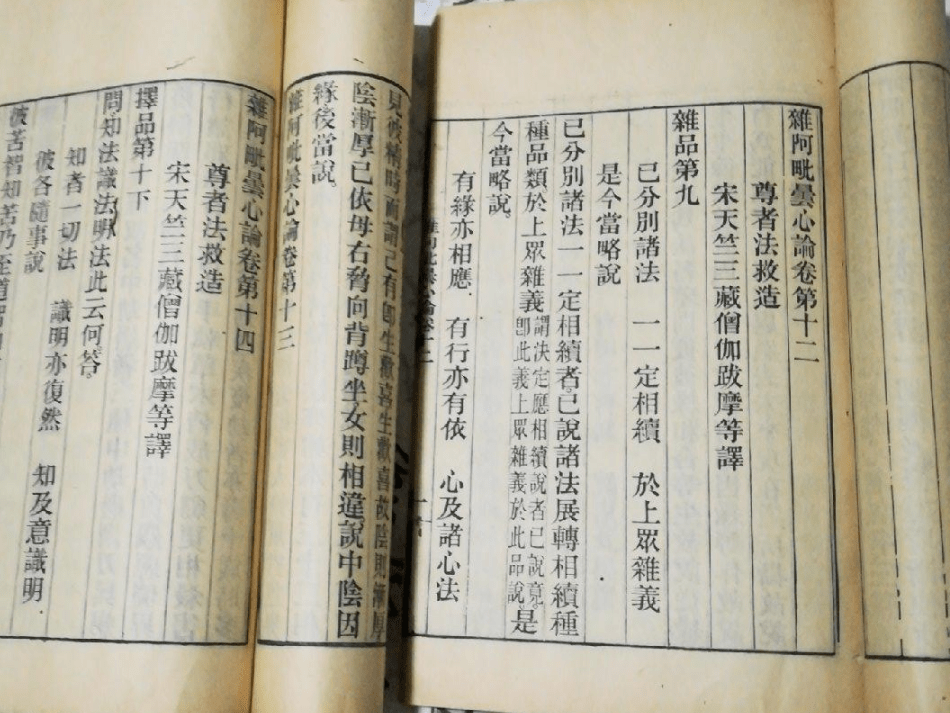 雜阿毗曇心論卷第十二
尊者法救造
宋天竺三藏僧伽跋摩等譯
雜品第九
已分別諸法　一一定相續　於上眾雜義
是今當略說
已分別諸法一一定相續者。已說諸法展轉相續種
種品類。於上眾雜義謂決定應相續說者已說竟。即此義上眾雜義於此品說。是
今當略說。
有緣亦相應　有行亦有依　心及諸心法
見彼精時而謂已有即生歡喜生歡喜故陰則漸厚
陰漸厚已依母右脅向背蹲坐女則相違說中陰因
緣後當說。
雜阿毗曇心論卷第十三
雜阿毗曇心論卷第十四
尊者法救造
宋天竺三藏僧伽跋摩等譯
擇品第十下
問。知法識法明法此云何。答。
知者一切法　識明亦復然　知及意識明
彼各隨事說
彼苦智知苦乃至道智知